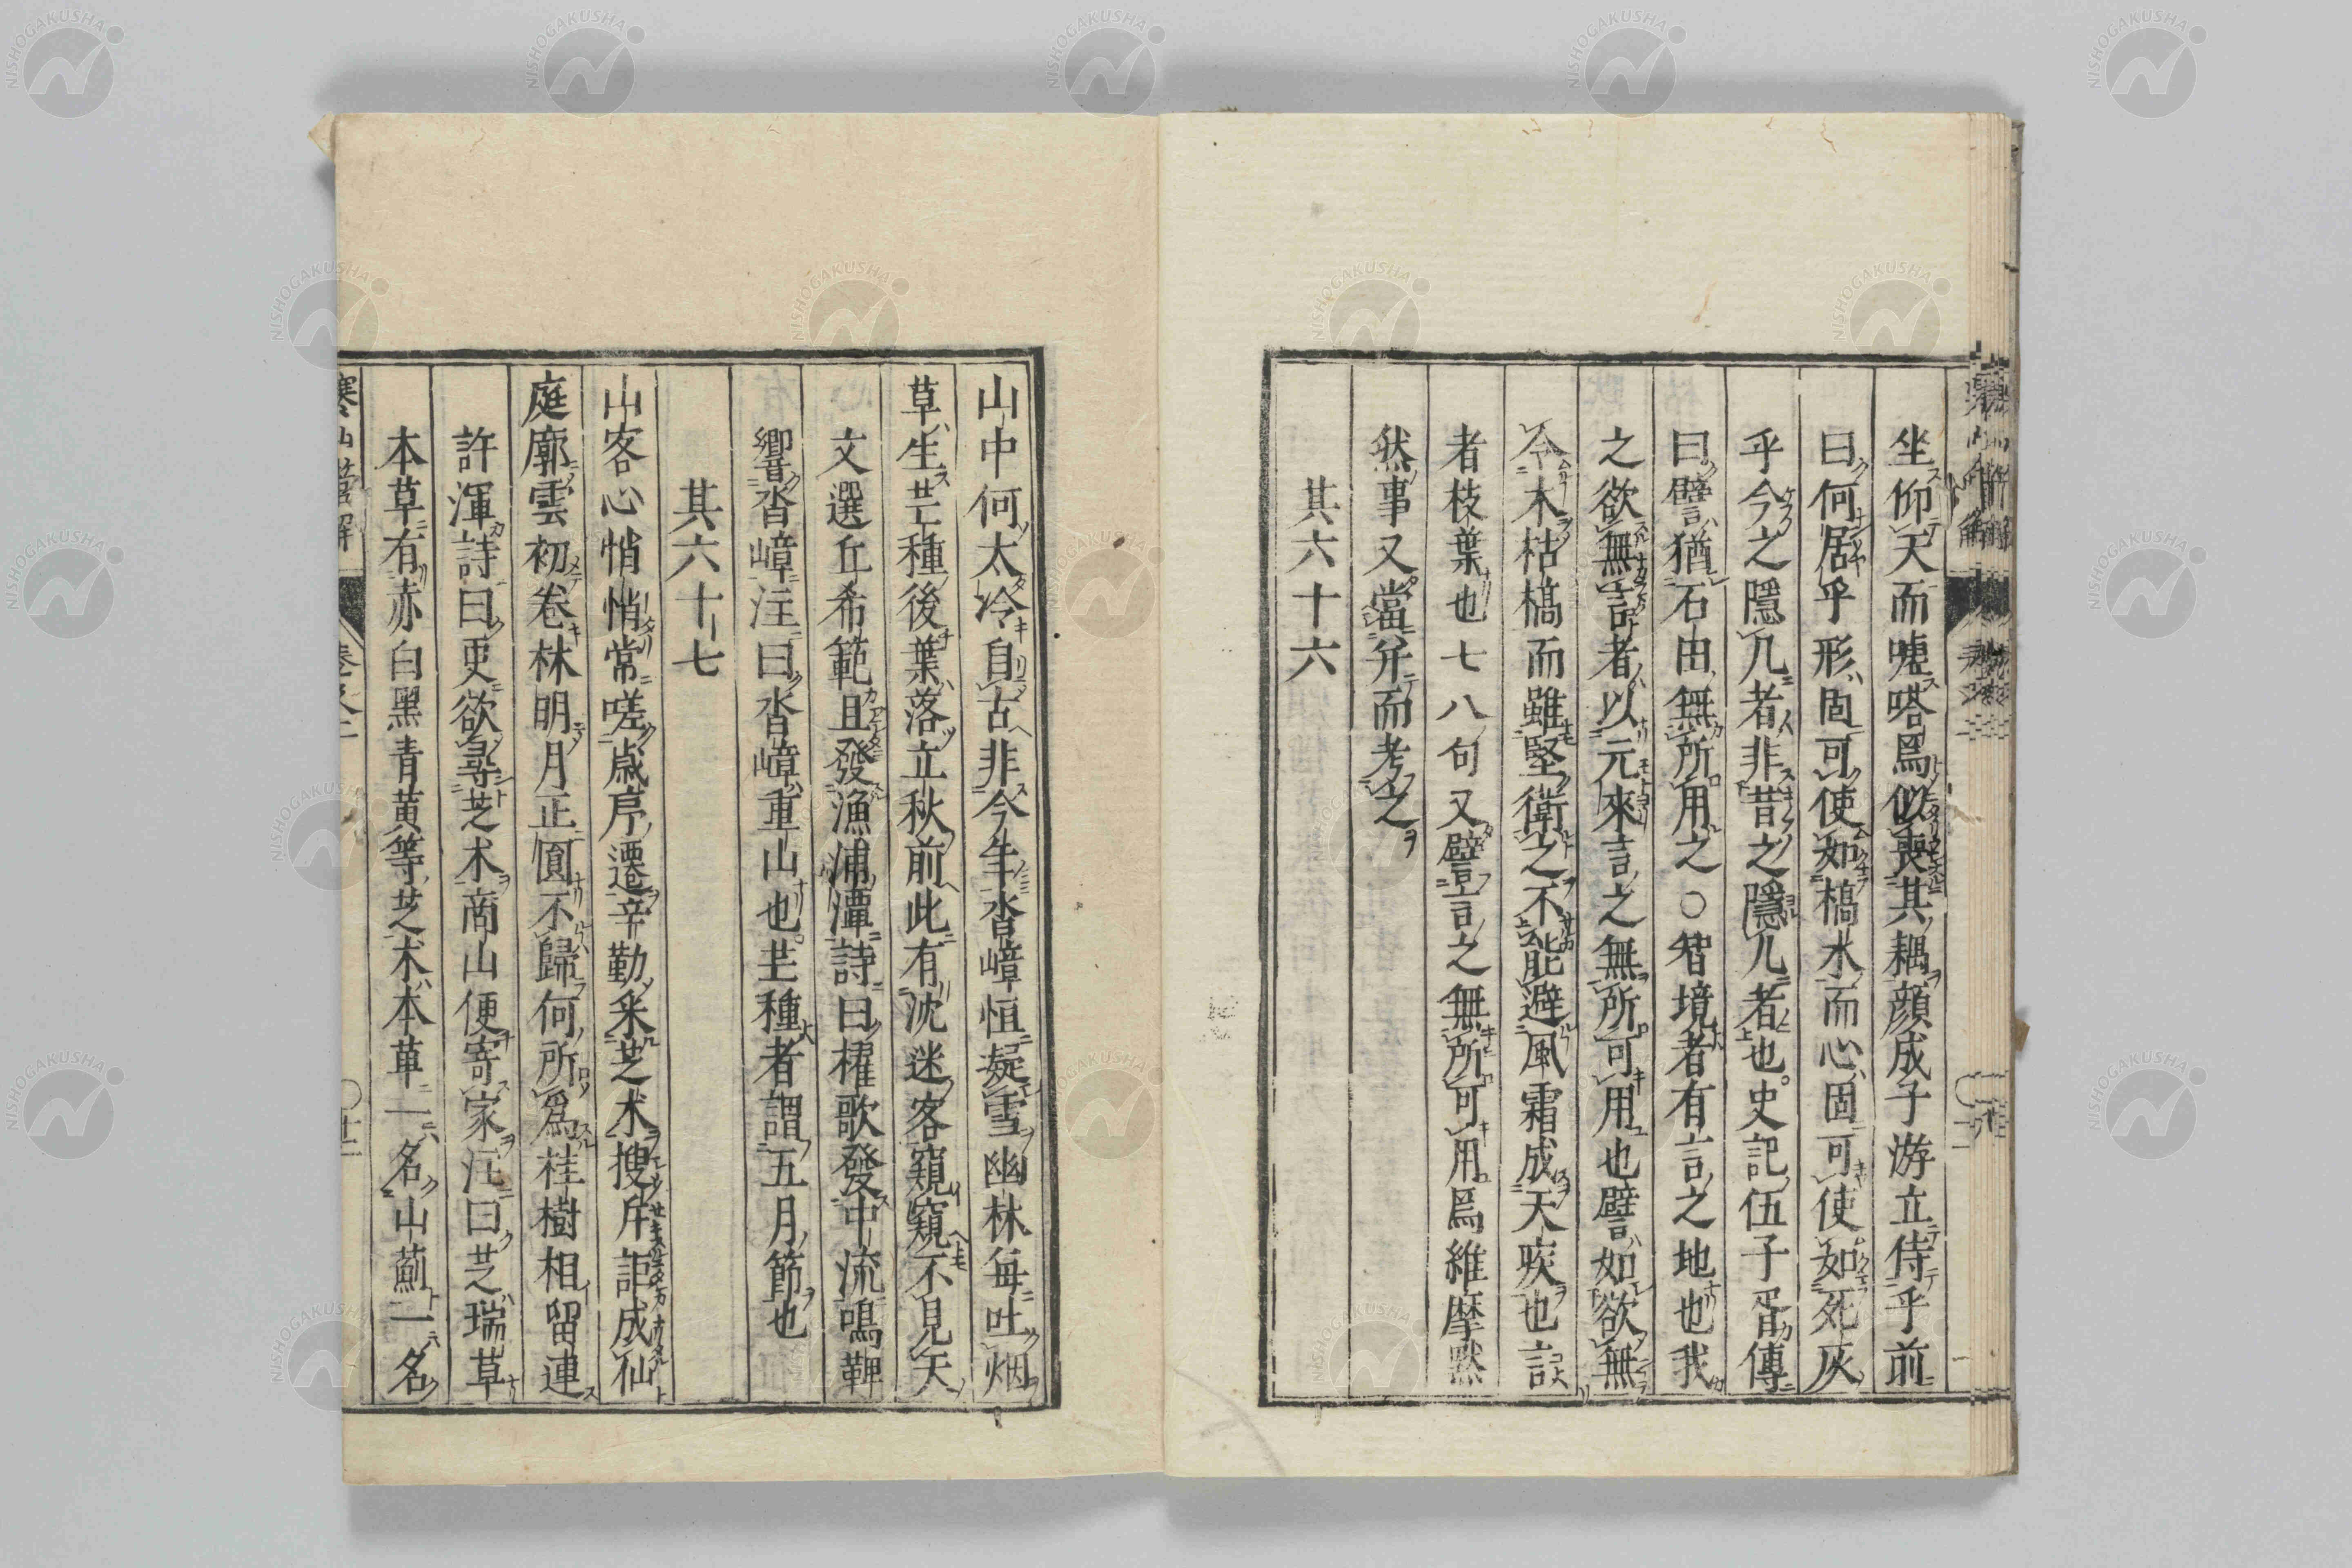 坐仰天而嘘嗒焉似喪其耦顔成子游立侍乎前
曰何居乎形固可使如槁水而心固可使如死灰
乎今之隱几者非昔之隱几者也史記伍子胥傳
曰譬猶石田無所用之○智境者有言之地也我
之欲無言者以元來言之無所可用也譬如欲無
令木枯槁而雖堅衛之不能避風霜成天疾也言
者枝葉也七八句又譬言之無所可用焉維摩黙
然事又當弁而考之
其六十六
山中何太冷自古非今年沓嶂恒凝雪幽林毎吐烟
草生芒種後葉落立秋前此有沈迷客窺窺不見天
文選丘希範且發漁浦潭詩曰櫂歌發中流鳴鞞
響沓嶂注曰沓嶂重山也芒種者謂五月節也
其六十七
山客心悄悄常嗟歲序遷辛勤采芝朮搜斥詎成仙
庭廓雲初卷林明月正圓不歸何所爲桂樹相留連
許渾詩曰更欲尋芝朮商山便寄家注曰芝瑞草
本草有赤白黑青黄等芝朮本草一名山薊一名
寒山詩管解 卷之二
NISHOGAKUSHA